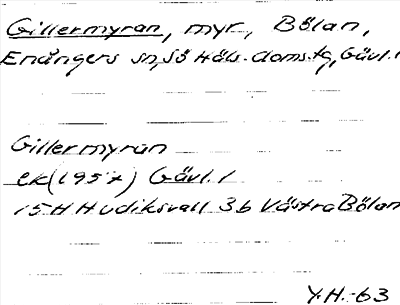 Gillermyran, myr, Bölan,
Enångers sn, Sö Häls. doms.tg, Gävl.l
Gillermyran
ek(1957) Gävl. l
15H Hudiksvall 3b Västra Bölan
Y.H.-63